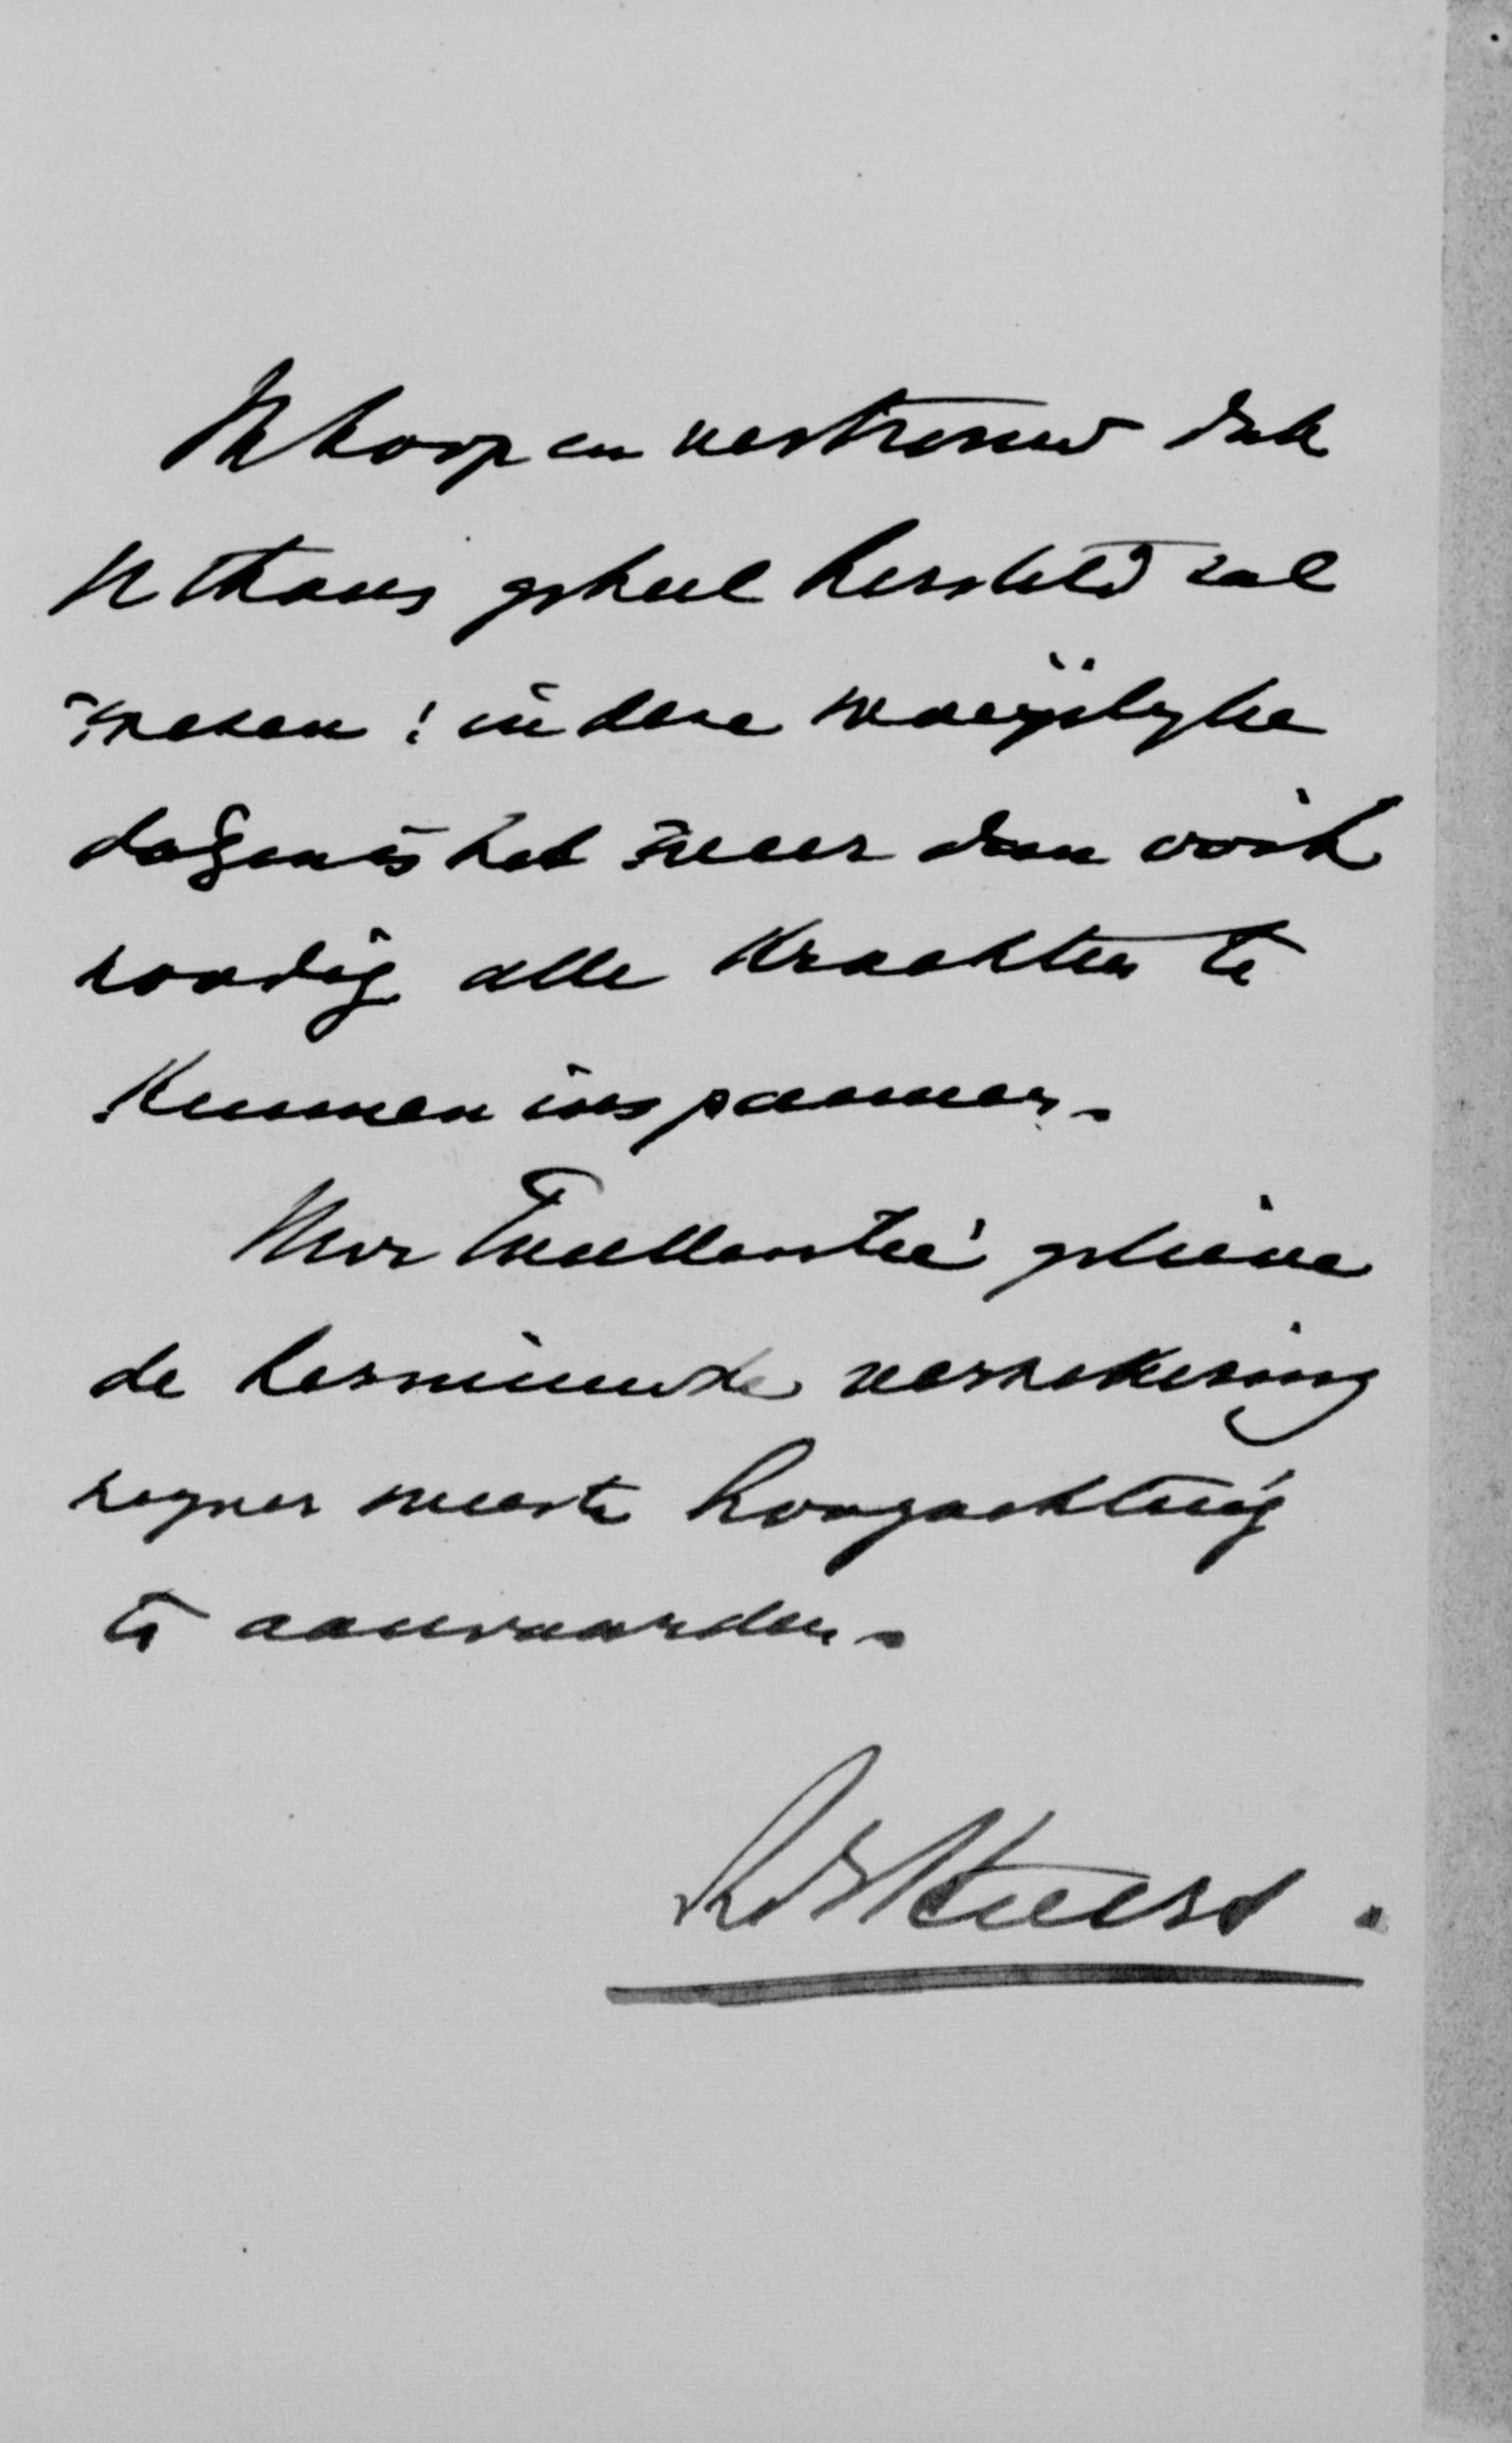 Ik hoop en vertrouw dat
U thans geheel hersteld zal
wezen; in deze moeijelyke
dagen is het meer dan ooit
noodig alle krachten te
kunnen inspannen.
Uwe Excellentie gelieve
de hernieuwde verzekering
mijner meeste hoogachting
te aanvaarden.